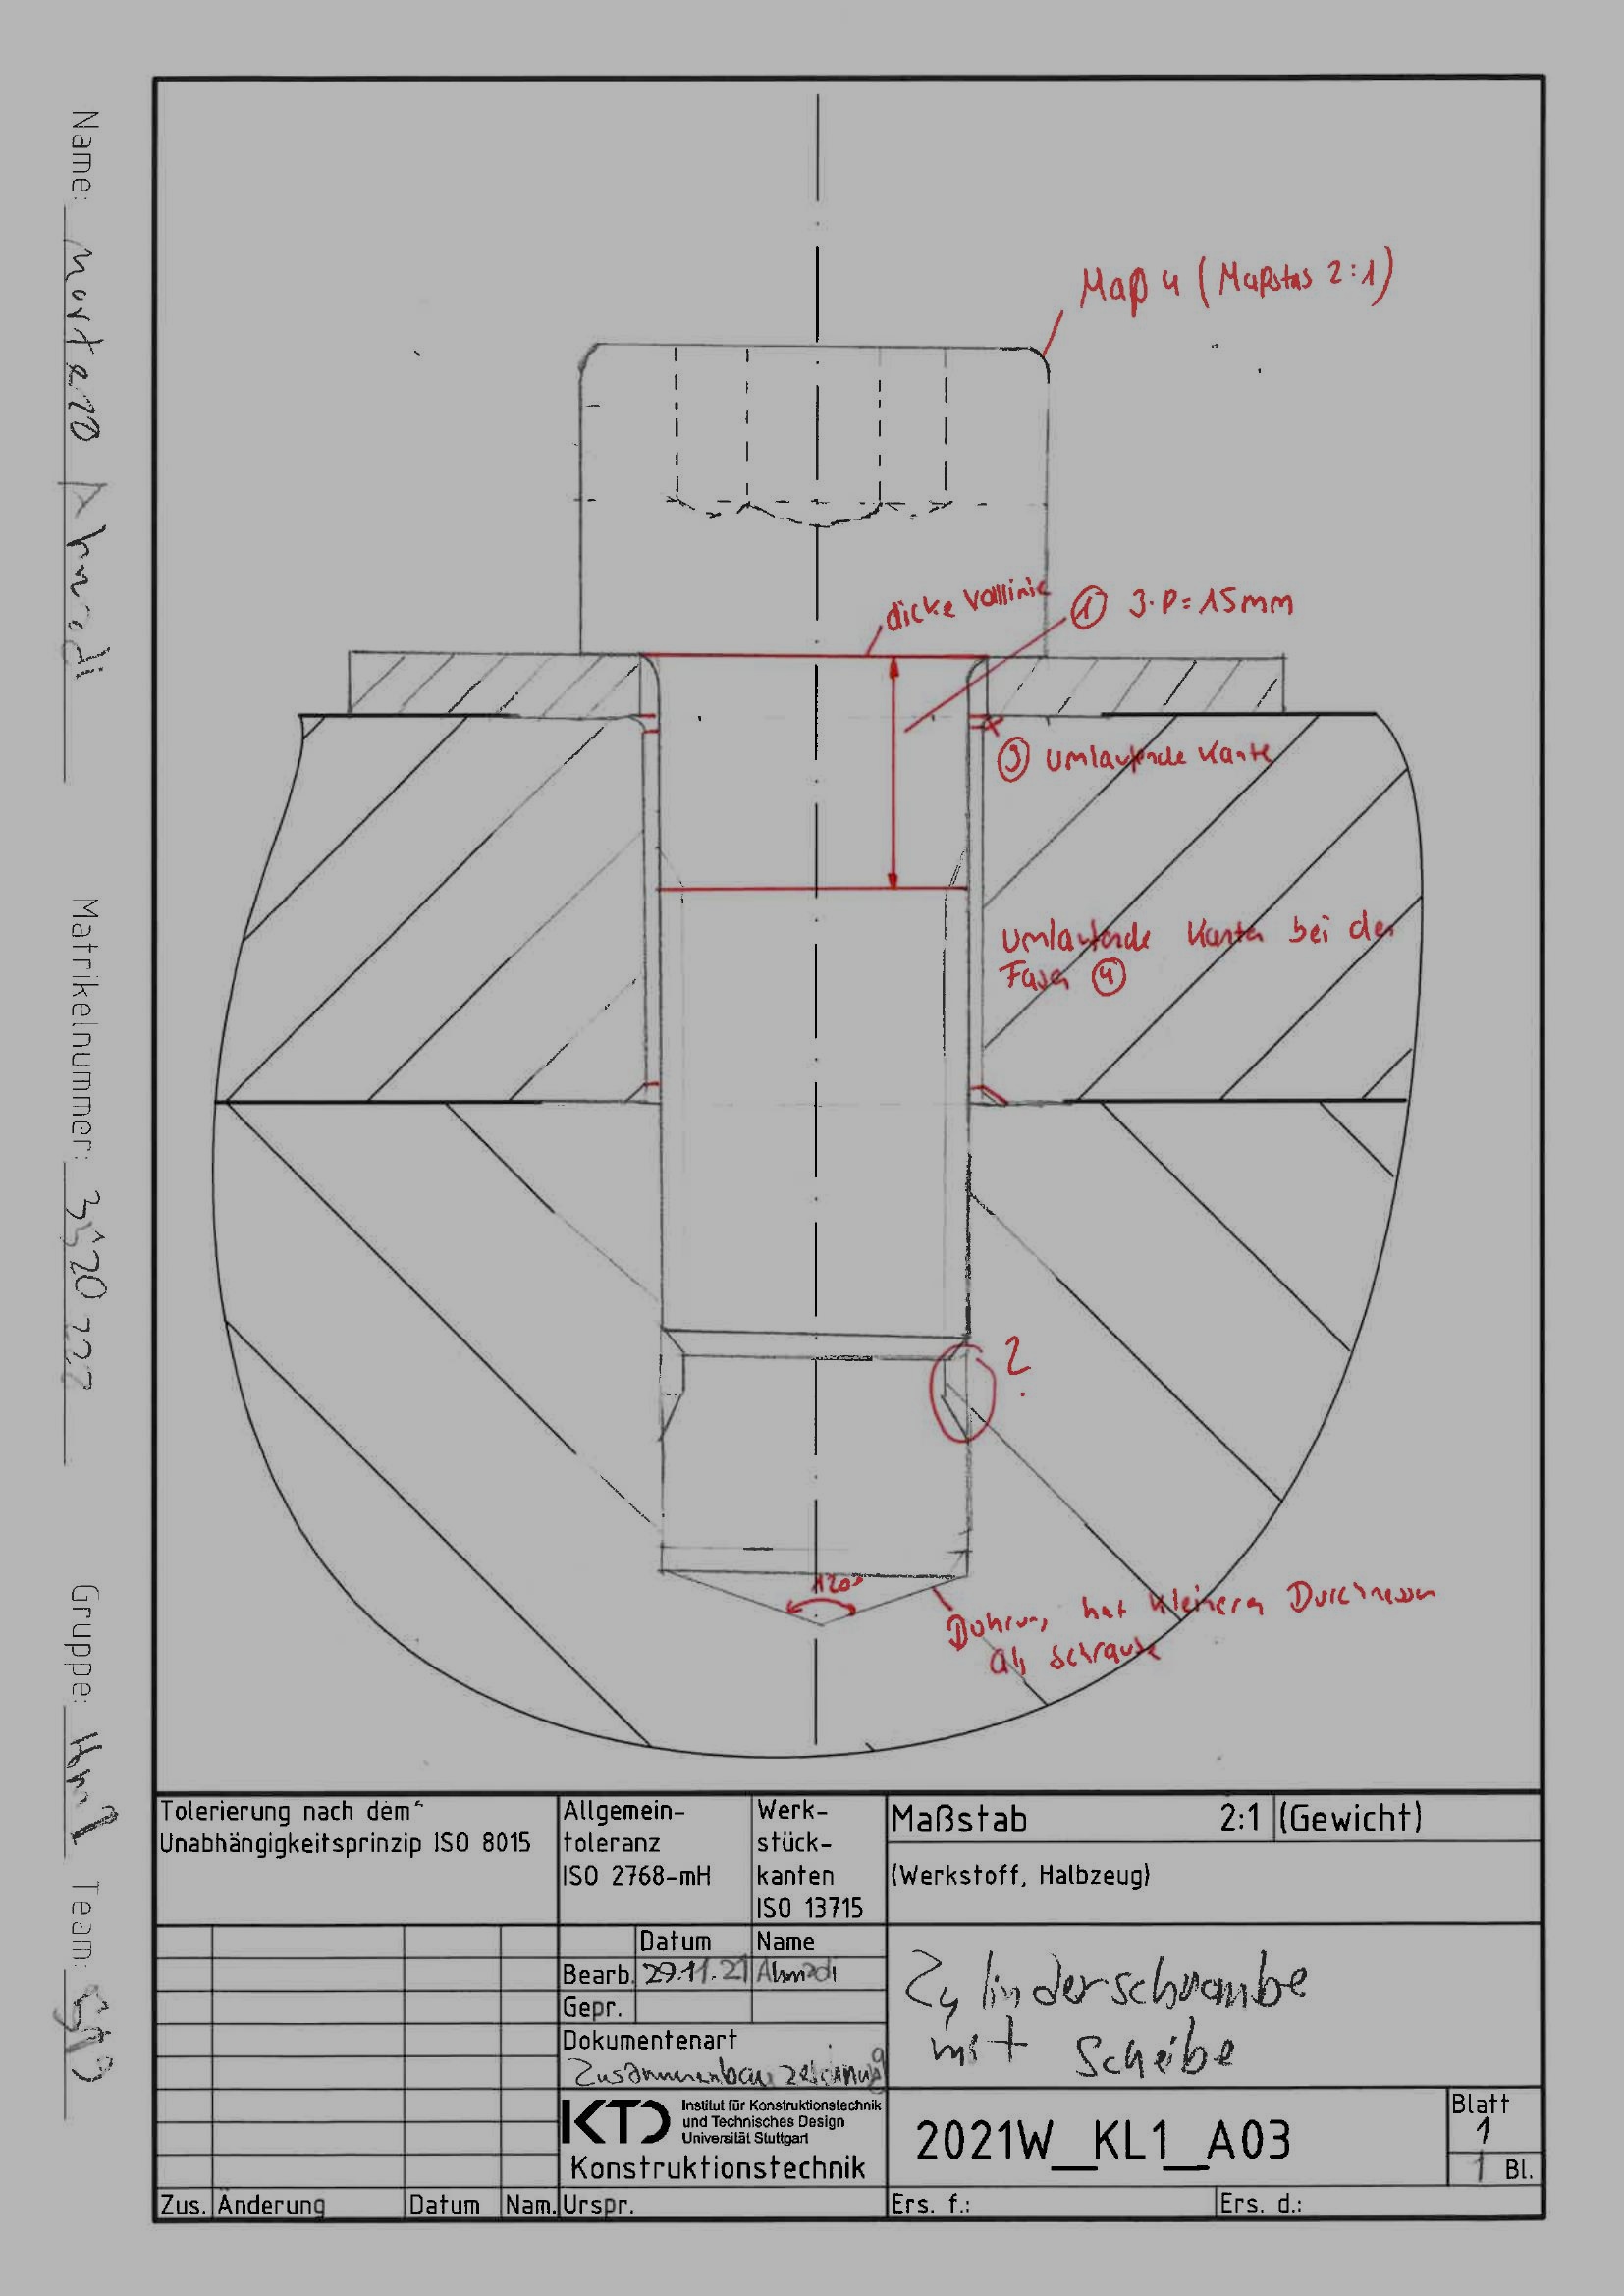 Name:
Matrikelnummer:
Gruppe:
Team:
Maß 4 (Maßstab 2:1)
dicke Volllinie
① 3·P=15mm
③ Umlaufende Kante
Umlaufende Kanten bei den
Fasen ④
?
120°
hat kleineren Durchmesser
als Schraube
Tolerierung nach dem
Unabhängigkeitsprinzip ISO 8015
Allgemein-
toleranz
ISO 2768-mH
Werk-
stück-
kanten
ISO 13715
Maßstab 2:1 (Gewicht)
(Werkstoff, Halbzeug)
Datum Name
Bearb. 29.11.21 Ahmadi
Gepr.
Dokumentenart
Zusammenbauzeichnung
Zylinderschraube
mit Scheibe
KTD
Institut für Konstruktionstechnik
und Technisches Design
Universität Stuttgart
Konstruktionstechnik
2021W_KL1_A03
Blatt
1
1 Bl.
Zus. Änderung Datum Nam. Urspr. Ers. f.: Ers. d.: